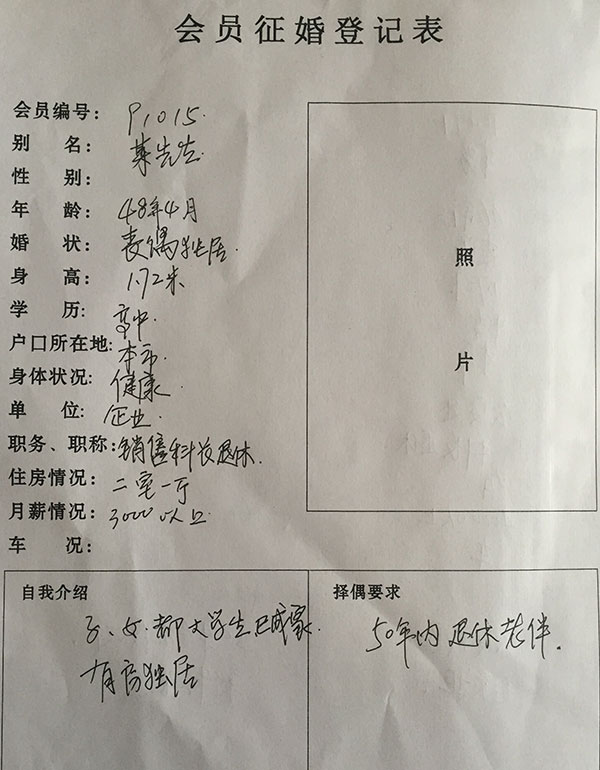 会员征婚登记表
会员编号: P1015.
别 名: 某先生.
性 别:
年 龄: 48年4月
婚 状: 丧偶独居.
身 高: 1.72米
学 历: 高中.
户口所在地: 本市.
身体状况: 健康
单 位: 企业
职务、职称: 销售科长退休.
住房情况: 二室一厅
月薪情况: 3000以上
车 况:
照
片
自我介绍
子、女.都大学生已成家.
有房独居
择偶要求
50年内退休老伴.